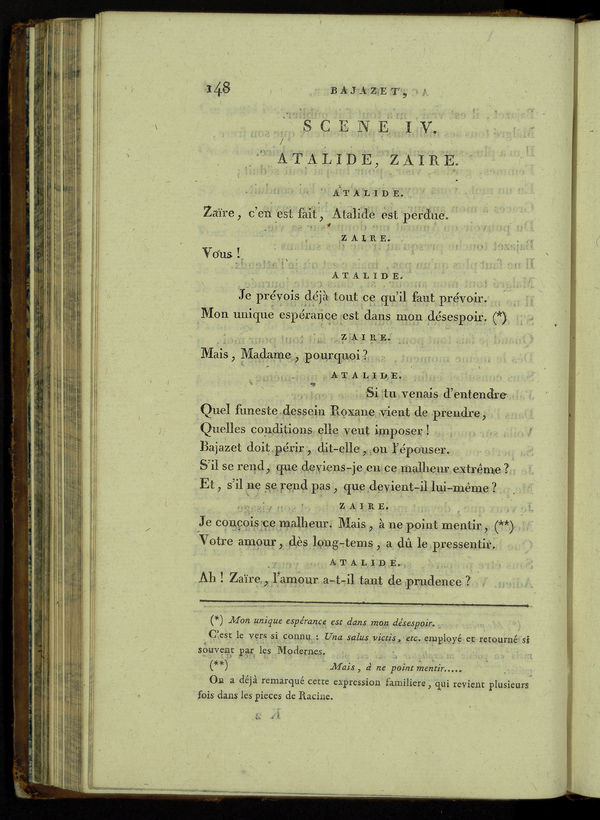 148 BAJAZET,
SCENE IV.
ATALIDE, ZAIRE.
ATALIDE.
Zaïre, c'en est fait, Atalide est perdue.
ZAIRE.
Vous !
ATALIDE.
Je prévois déjà tout ce qu'il faut prévoir.
Mon unique espérance est dans mon désespoir. (*)
ZAIRE.
Mais, Madame, pourquoi ?
ATALIDE.
Si tu venais d'entendre
Quel funeste dessein Roxane vient de prendre,
Quelles conditions elle veut imposer !
Bajazet doit périr, dit-elle, ou l'épouser.
S'il se rend, que deviens-je en ce malheur extrême ?
Et, s'il ne se rend pas, que devient-il lui-même ?
ZAIRE.
Je conçois ce malheur. Mais, à ne point mentir, (**)
Votre amour, dès long-tems, a dû le pressentir.
ATALIDE.
Ah ! Zaïre, l'amour a-t-il tant de prudence ?
(*) Mon unique espérance est dans mon désespoir.
C'est le vers si connu : Una salus victis, etc. employé et retourné si
souvent par les Modernes.
(**) Mais, à ne point mentir.....
On a déjà remarqué cette expression familiere, qui revient plusieurs
fois dans les pieces de Racine.